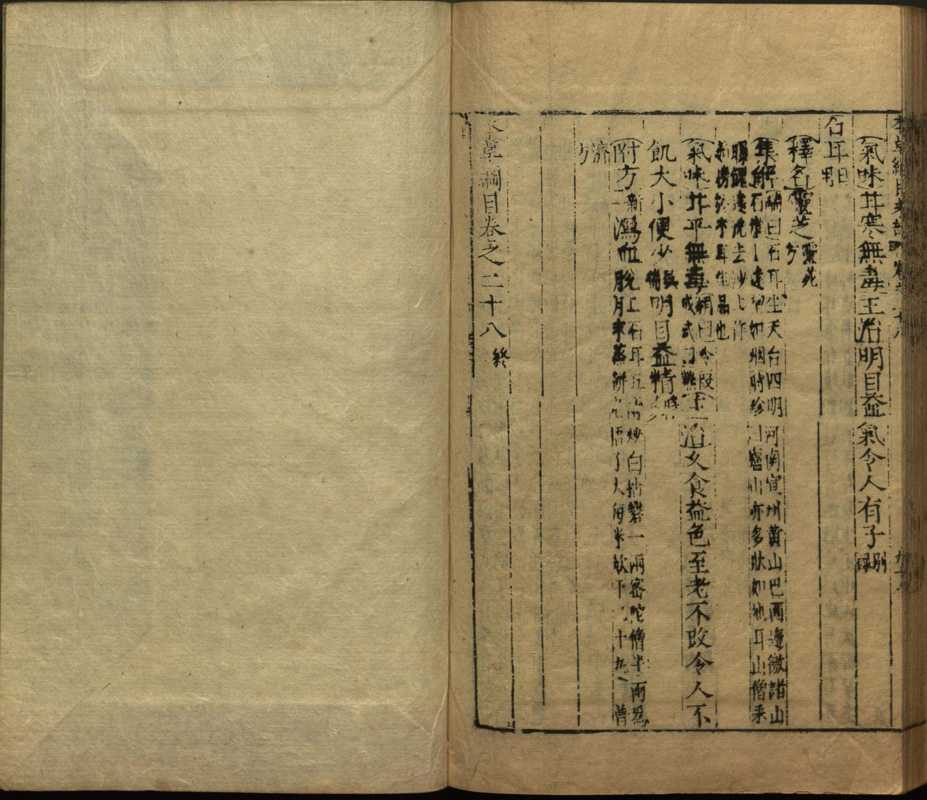 氣味甘寒無毒主治明目益氣令人有子別錄
石耳日用
釋名靈芝靈苑方
集解瑞曰石耳生天台四明河南宣州黃山巴西邊徼諸山
石崖上遠如烟時珍曰廬山亦多狀如地耳山僧采
曝餽遠洗去沙土作
茹勝於木耳佳品也
氣味甘平無毒時珍曰冷段成式曰熱主治久食益色至老不改令人不
飢大小便少吳瑞明目益精時珍
附方新一瀉血脫肛石耳五兩炒白枯礬一兩密陀僧半兩爲
末蒸餅丸梧子大每米飲下二十丸普
濟方
本草綱目卷之二十八終